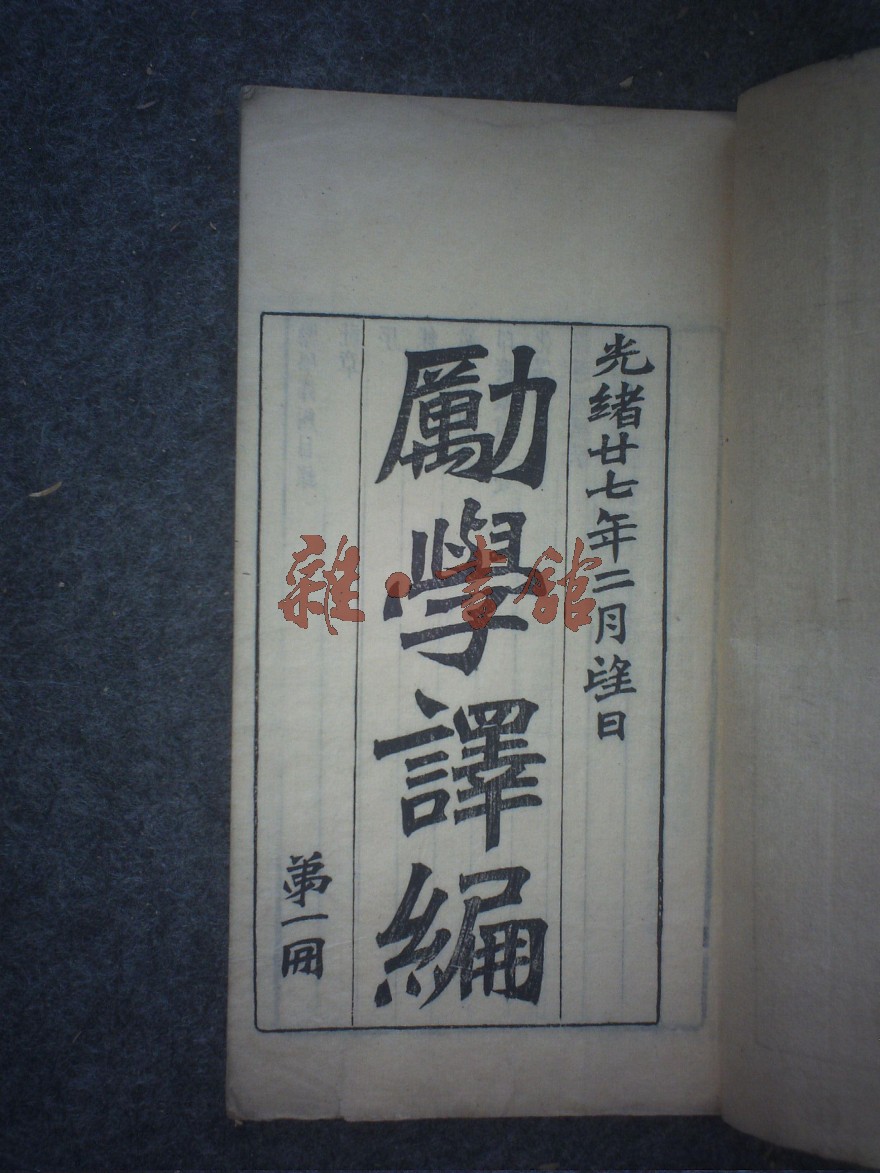 光緒廿七年二月望日
勵學譯編
第一冊
雜·書館